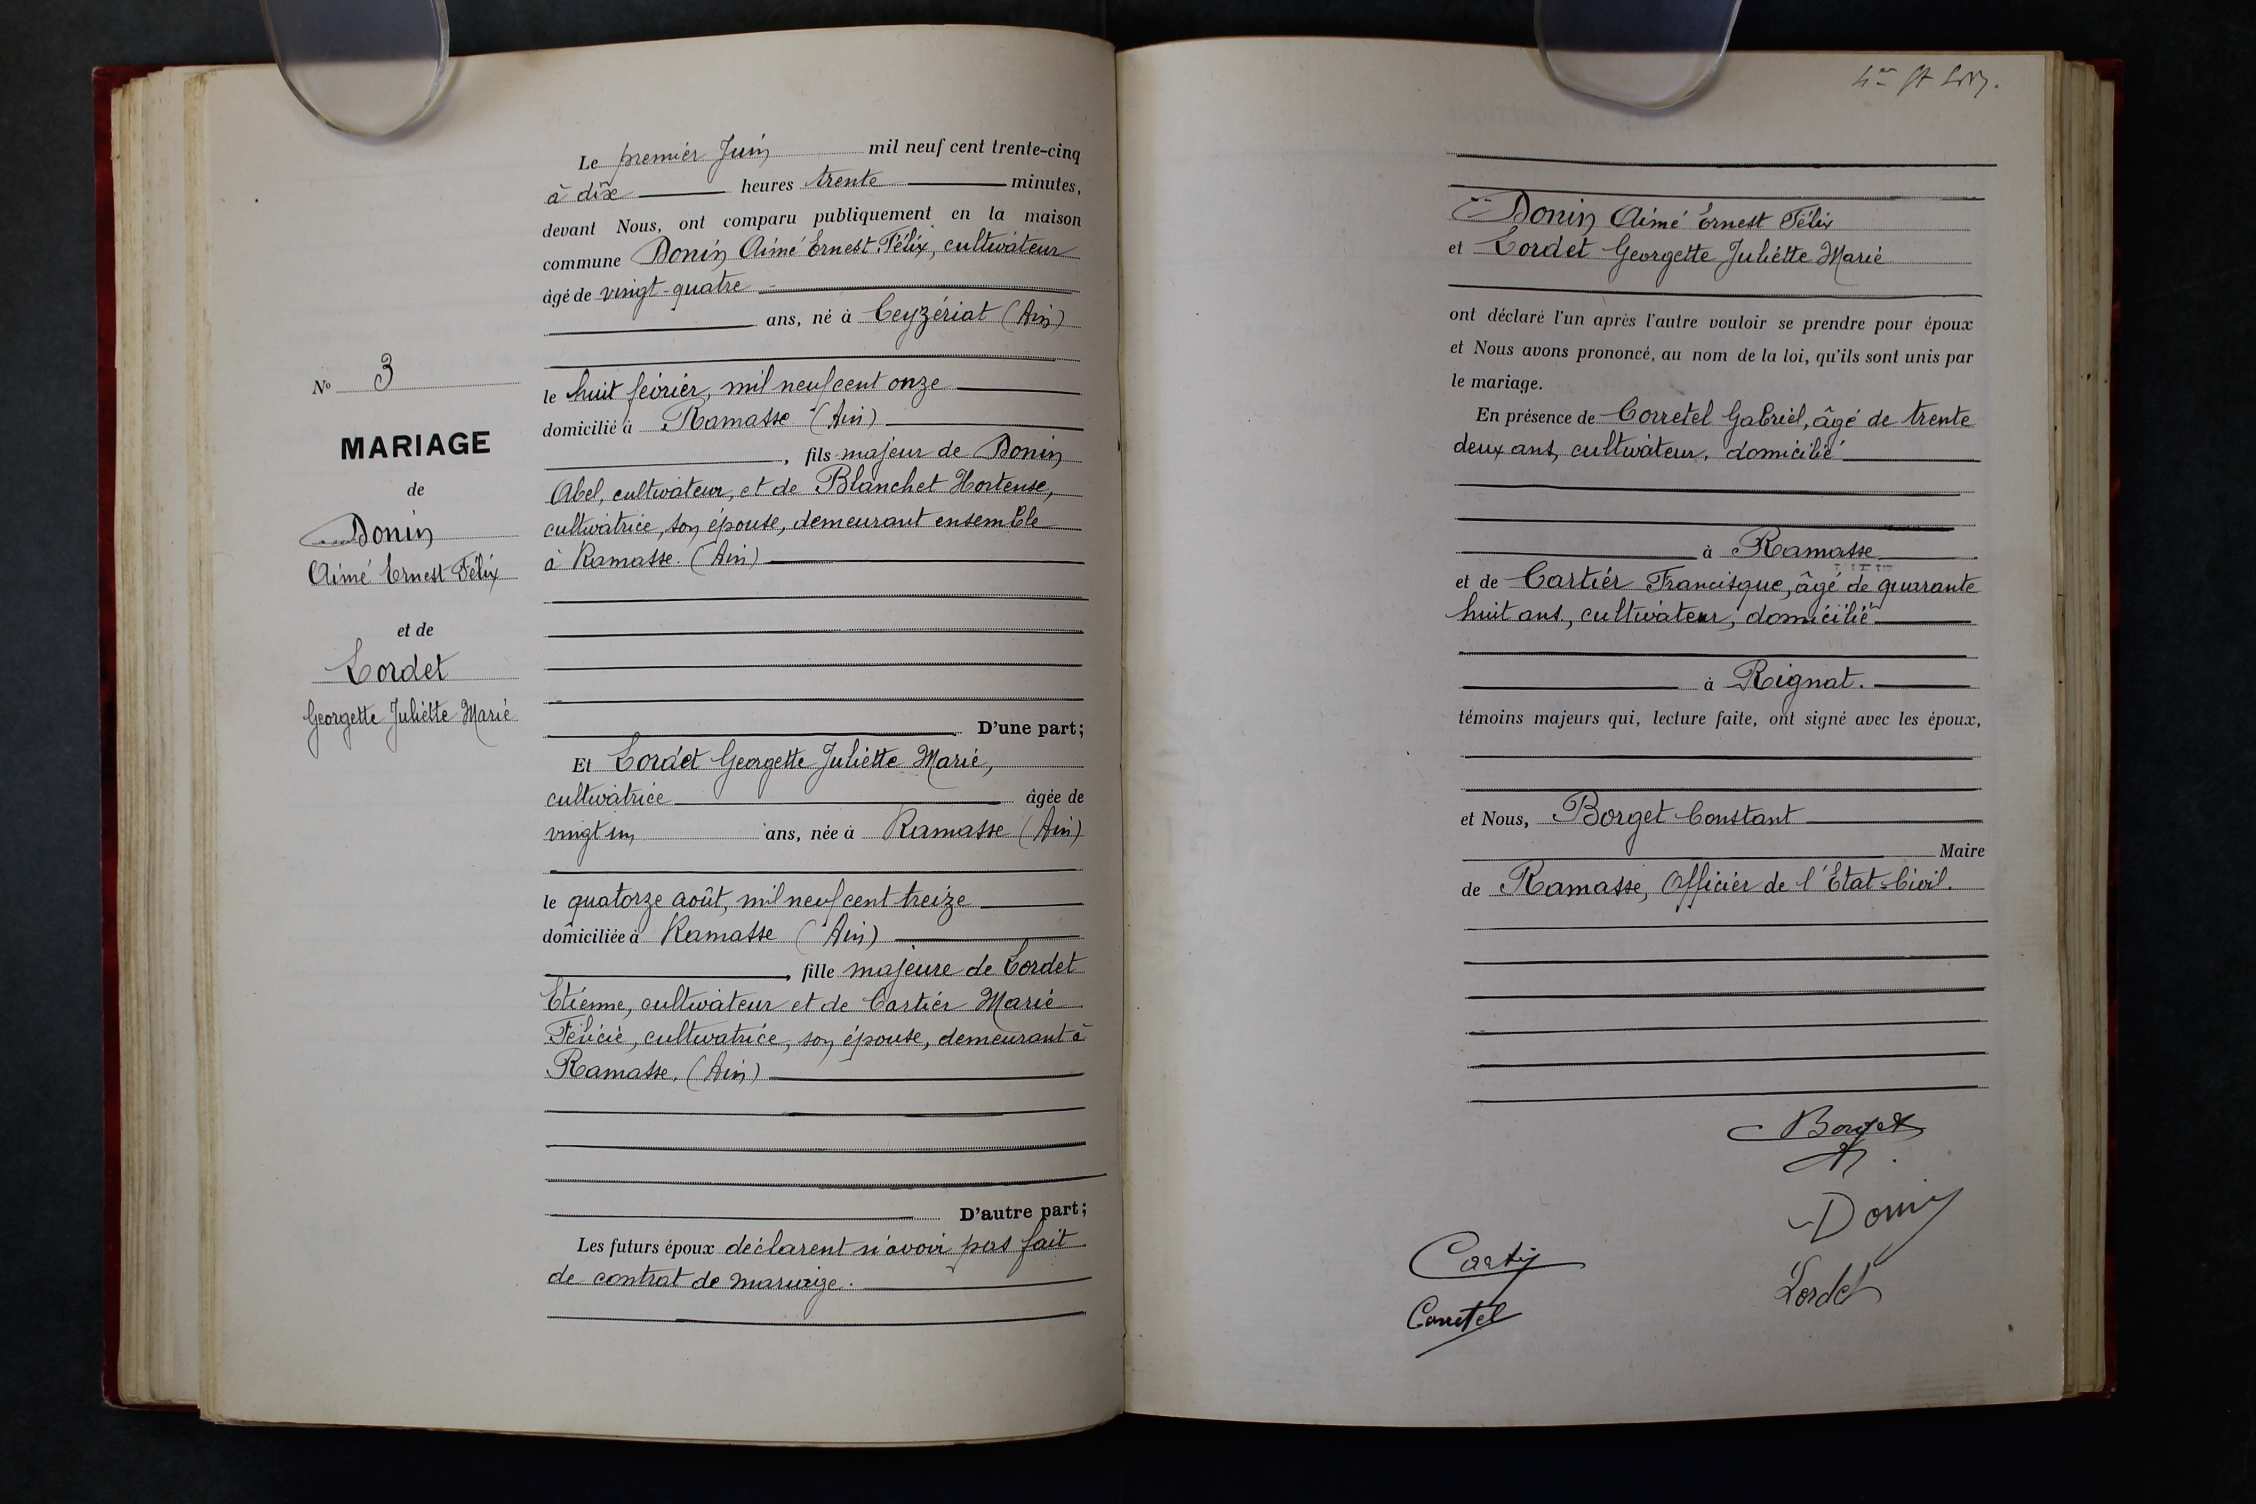 Le premier Juin mil neuf cent trente-cinq
à dix heures trente minutes,
devant Nous, ont comparu publiquement en la maison
commune Donin Aimé Ernest Félix, cultivateur
âgé de vingt-quatre
ans, né à Ceyzériat (Ain)
le huit février, mil neuf cent onze
domicilié à Ramasse (Ain)
, fils majeur de Donin
Abel, cultivateur, et de Blanchet Hortense,
cultivatrice, son épouse, demeurant ensemble
à Ramasse. (Ain)
D'une part;
Et Lordet Georgette Juliette Marie,
cultivatrice âgée de
vingt un ans, née à Ramasse (Ain)
le quatorze août, mil neuf cent treize
domiciliée à Ramasse (Ain)
, fille majeure de Lordet
Etienne, cultivateur et de Cartier Marie
Félicie, cultivatrice, son épouse, demeurant à
Ramasse. (Ain)
D'autre part;
Les futurs époux déclarent n'avoir pas fait
de contrat de mariage.
No 3
MARIAGE
de
Donin
Aimé Ernest Félix
et de
Lordet
Georgette Juliette Marie
Donin Aimé Ernest Félix
et Lordet Georgette Juliette Marie
ont déclaré l'un après l'autre vouloir se prendre pour époux
et Nous avons prononcé, au nom de la loi, qu'ils sont unis par
le mariage.
En présence de Corretel Gabriel, âgé de trente
deux ans, cultivateur, domicilié
à Ramasse
et de Cartier Francisque, âgé de quarante
huit ans, cultivateur, domicilié
à Rignat.
témoins majeurs qui, lecture faite, ont signé avec les époux,
et Nous, Borget Constant
Maire
de Ramasse, Officier de l'Etat-Civil.
Borget
Donin
Cartier
Lordet
Corretel